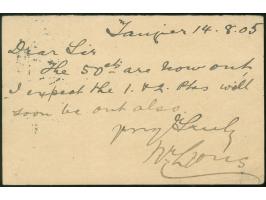 Tangier 14.8.05
Dear Sir
The 50cts are now out,
I expect the 1. & 2. Ptas will
soon be out also.
yrs truly
Wm